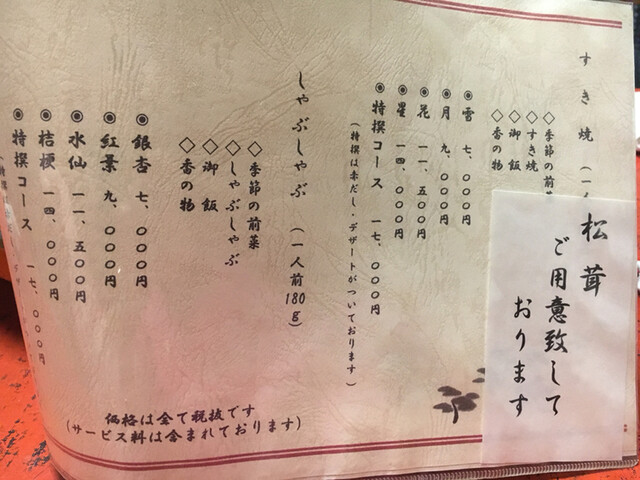 すき焼（一人
◇季節の前菜
◇すき焼
◇御飯
◇香の物
◉雪 七、〇〇〇円
◉月 九、〇〇〇円
◉花 一一、五〇〇円
◉星 一四、〇〇〇円
◉特撰コース 一七、〇〇〇円
（特撰は赤だし・デザートがついております）
しゃぶしゃぶ（一人前180g）
◇季節の前菜
◇しゃぶしゃぶ
◇御飯
◇香の物
◉銀杏 七、〇〇〇円
◉紅葉 九、〇〇〇円
◉水仙 一一、五〇〇円
◉桔梗 一四、〇〇〇円
◉特撰コース 一七、〇〇〇円
価格は全て税抜です
（サービス料は含まれております）
松茸
ご用意致して
おります